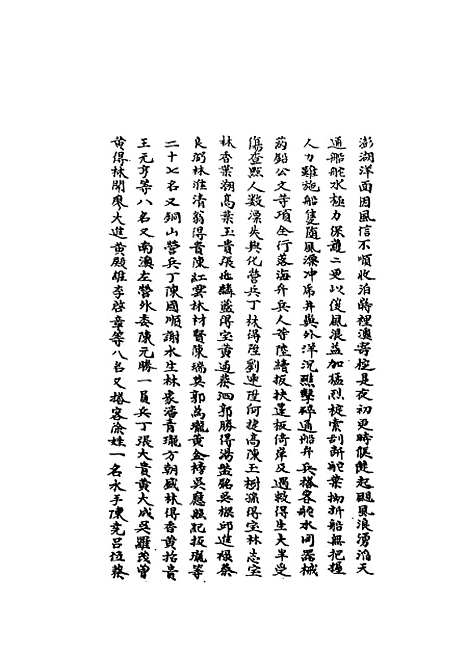 澎湖洋面因風信不順收泊嵵裡澳寄椗是夜初更時候陡起颶風浪湧滔天
通船舵水極力保護二更以後風浪益加猛烈椗索刮斷舵葉拗折船無把握
人力難施船隻隨風漂冲虎井與外洋沉礁擊碎通船弁兵搭客舵水同器械
葯鉛公文等項全行落海弁兵人等陸續扳扶篷板倚岸及遇救得生大半受
傷查點人數漂失興化營兵丁林得陞劉連陞何捷高陳玉樹漁得宝林志宝
林香葉潮高葉玉貴張兆麟藍得宝黃通蔡泗郭勝得湯盛銘吳根邱進祿蔡
良弼林淮清翁得貴陳紅雲林材賢陳瑞英郭萬瓏黃金榜吳應照紀振瓏等
二十七名又銅山營兵丁陳國順謝水生林家滿青瓏方朝盛林得香黃拈貴
王元亨等八名又南澳左營外委陳元勝一員兵丁張大貴黃大成吳雖茂曾
黃得林開廖大進黃殿雄李啓章等八名又搭客涂姓一名水手陳克呂拉蔡